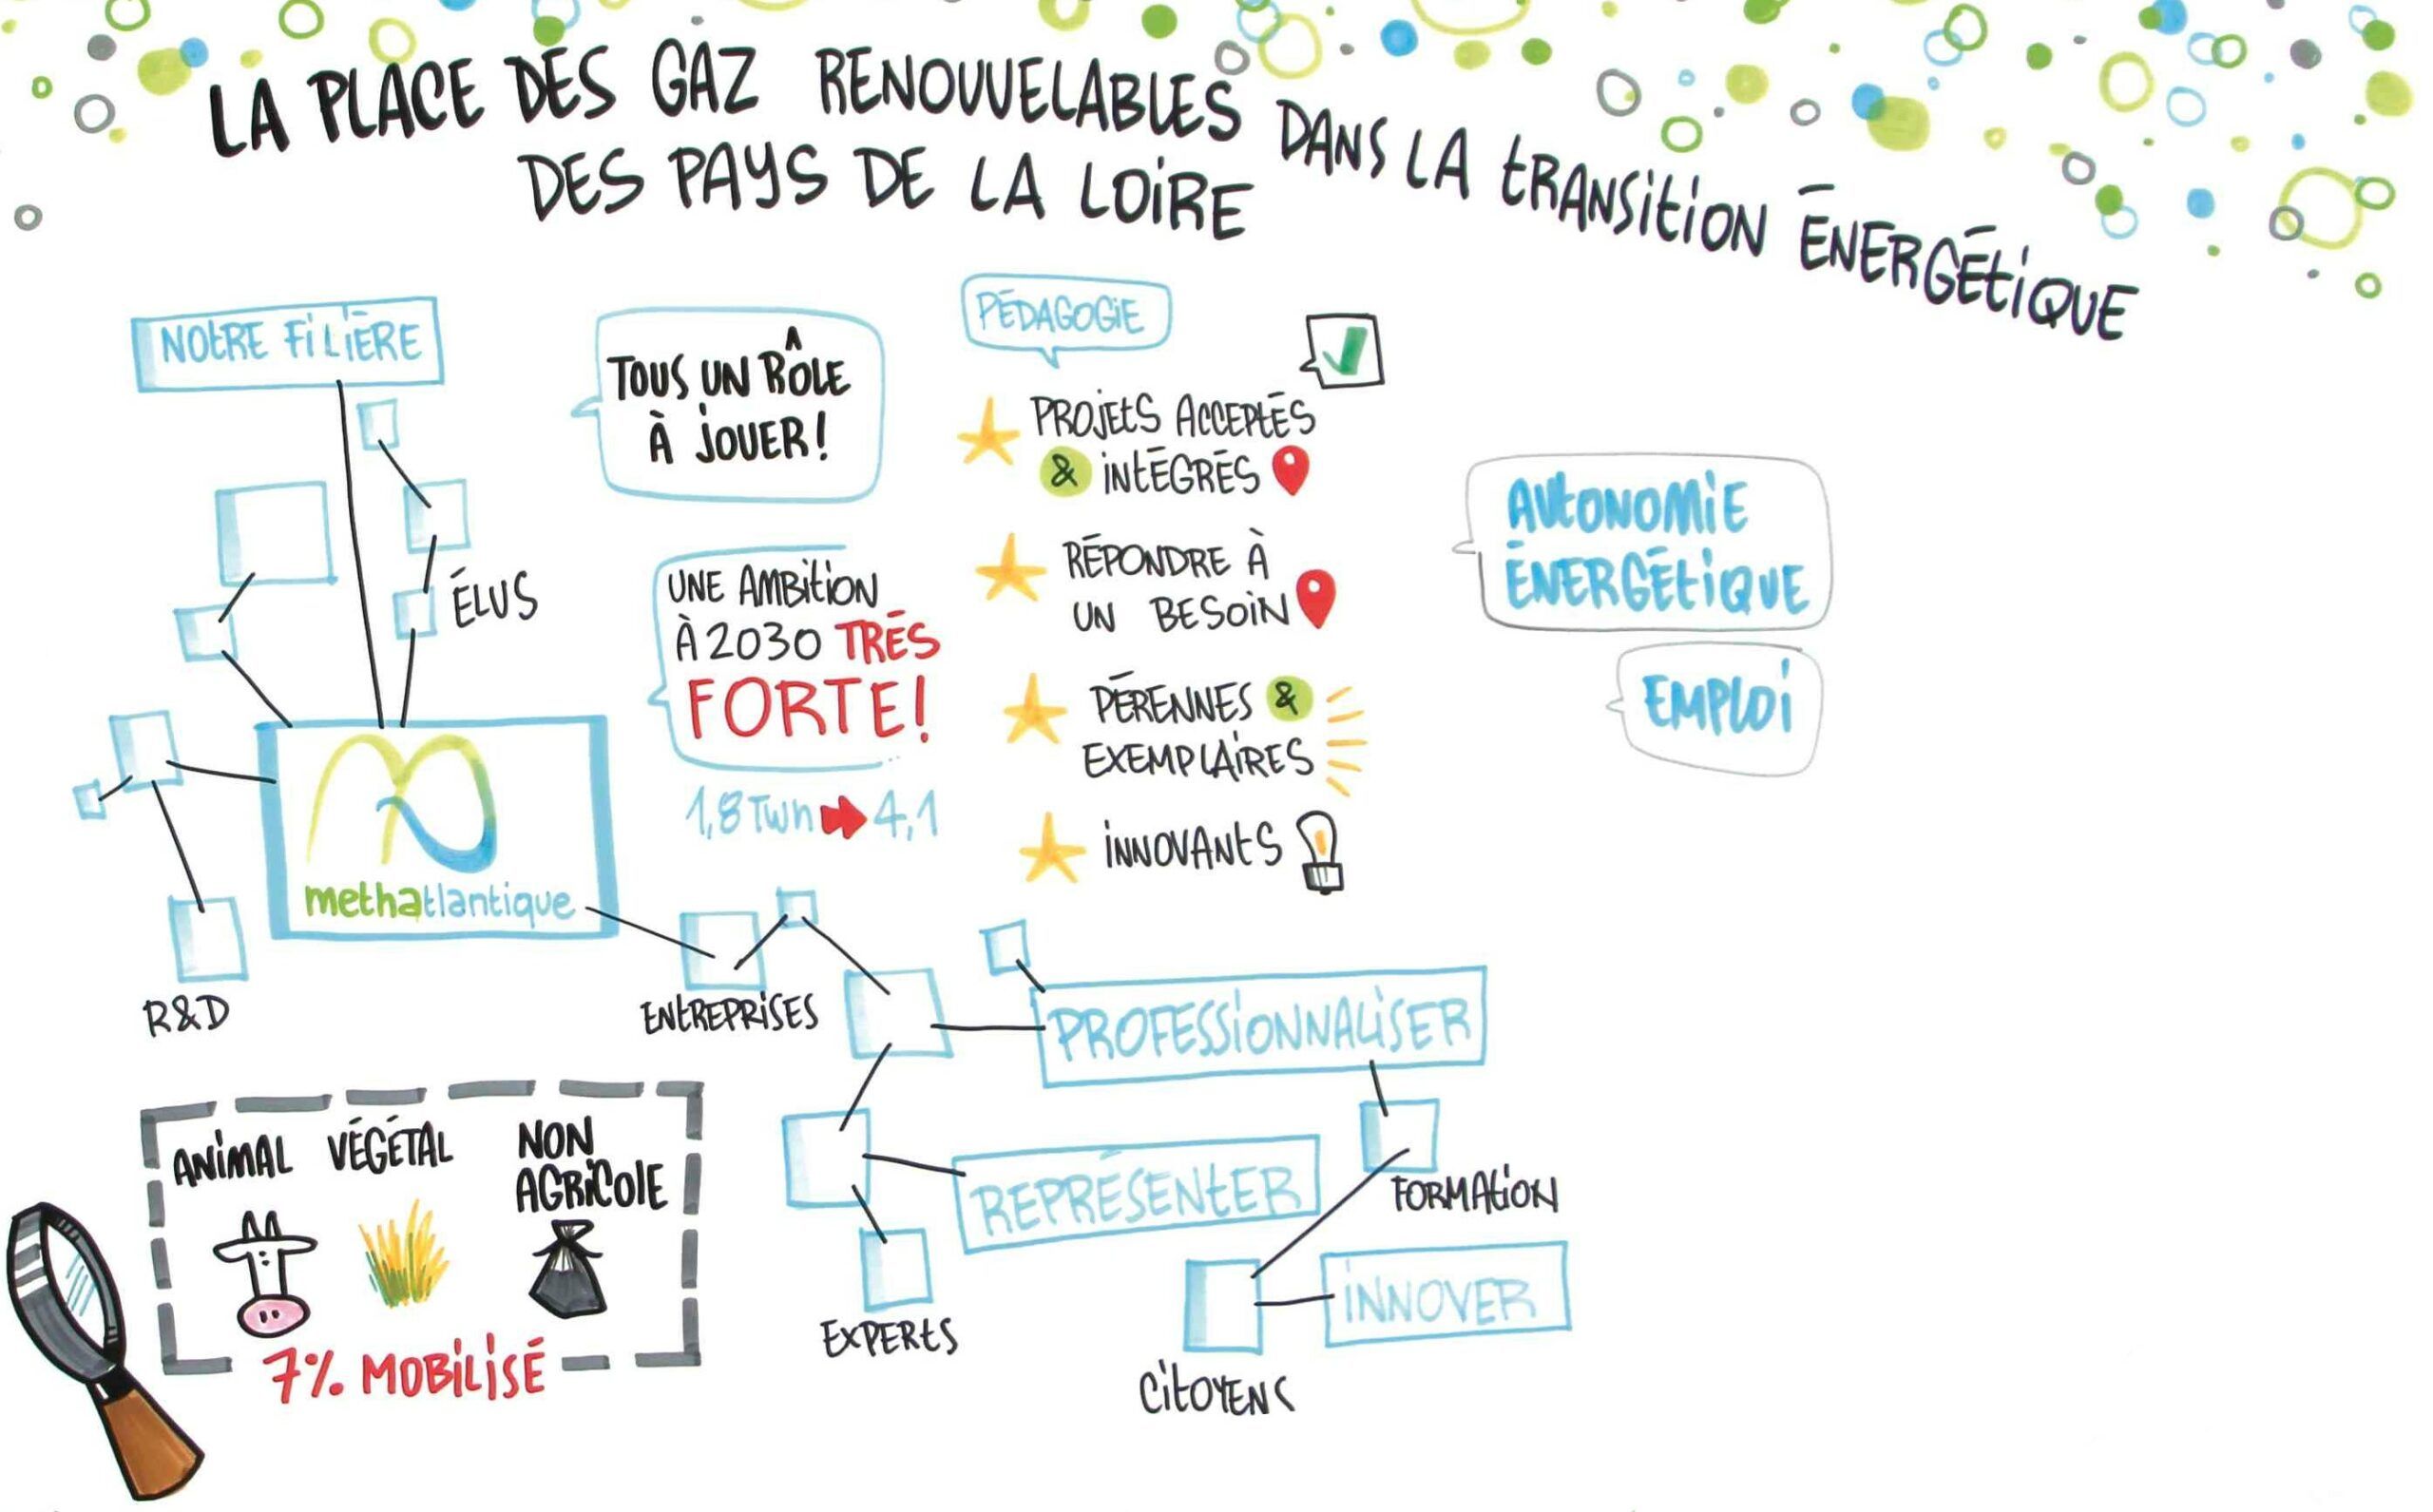 LA PLACE DES GAZ RENOUVELABLES DANS LA TRANSITION ÉNERGÉTIQUE
DES PAYS DE LA LOIRE
NOTRE FILIÈRE
TOUS UN RÔLE
À JOUER !
PÉDAGOGIE
PROJETS ACCEPTÉS
& INTÉGRÉS
RÉPONDRE À
UN BESOIN
PÉRENNES &
EXEMPLAIRES
INNOVANTS
AUTONOMIE
ÉNERGÉTIQUE
EMPLOI
ÉLUS
UNE AMBITION
À 2030 TRÈS
FORTE !
1,8 Twh 4,1
methatlantique
R&D
ENTREPRISES
PROFESSIONNALISER
REPRÉSENTER
FORMATION
INNOVER
EXPERTS
CITOYENS
ANIMAL VÉGÉTAL NON
AGRICOLE
7% MOBILISÉ